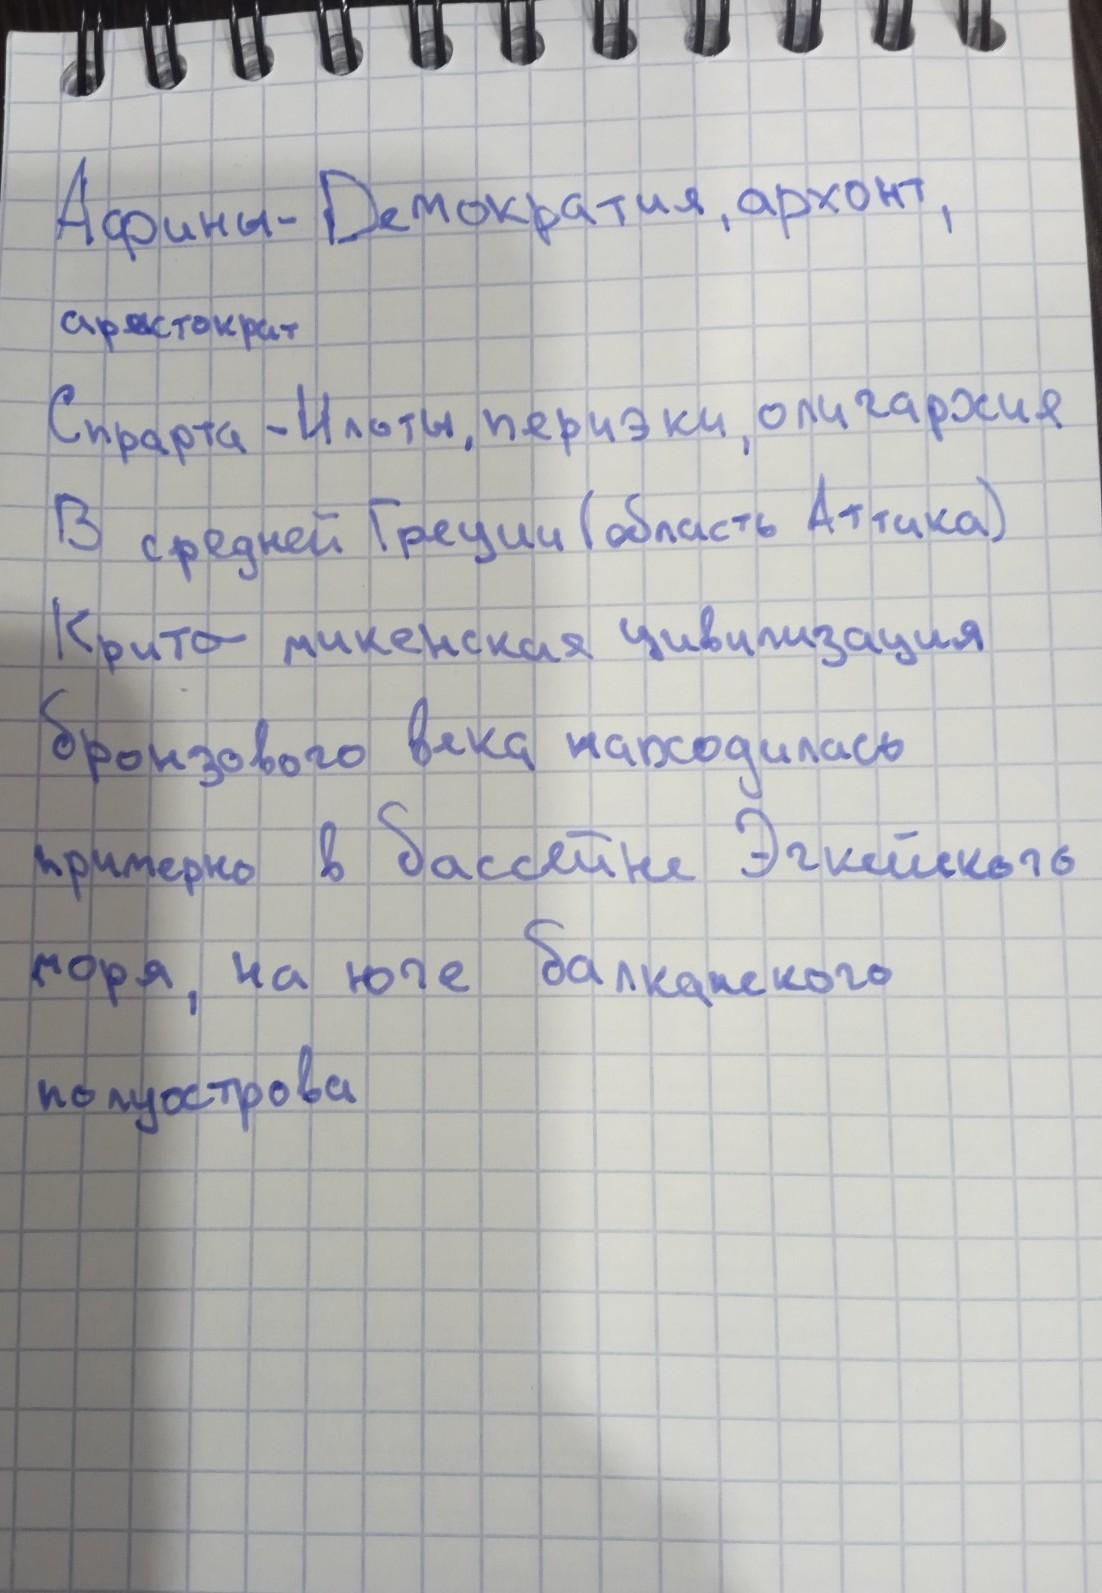 Афины - Демократия, архонт,
аристократ
Спрарта - Илоты, периэки, олигархия
В средней Греции (область Аттика)
Крито микенская цивилизация
бронзового века находилась
примерно в бассейне Эгкейского
моря, на юге балканского
полуострова